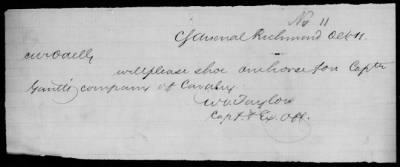 No 11
CS Arsenal Richmond Oct 11
will please shoe one horse for Capt
Gantts company of Cavalry
W. N. Taylor
Capt. & Ex. Off.